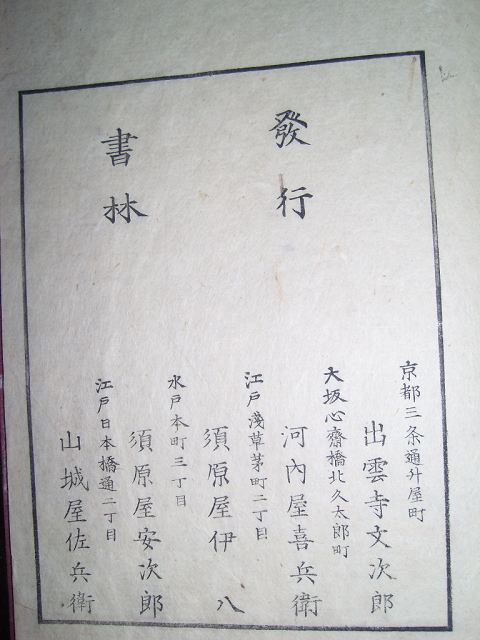 發行
書林
京都三条通升屋町
出雲寺文次郎
大坂心齋橋北久太郎町
河內屋喜兵衛
江戸淺草茅町二丁目
須原屋伊八
水戸本町三丁目
須原屋安次郎
江戸日本橋通二丁目
山城屋佐兵衛